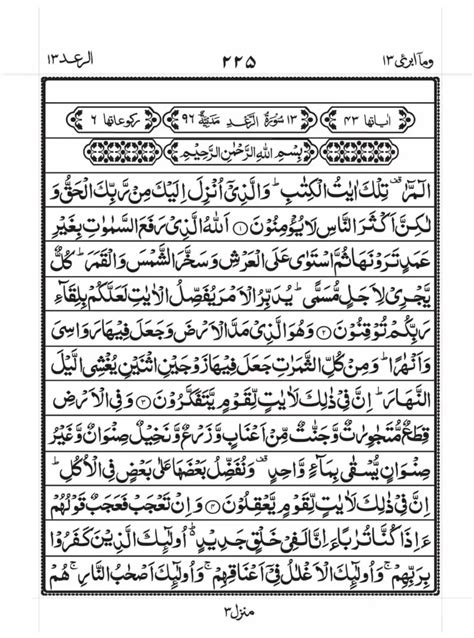 وما ابرئ ١٣ ٢٢٥ الرعد ١٣
اٰیاتها ٤٣ ١٣ سُوْرَةُ الرَّعْدِ مَدَنِيَّةٌ ٩٦ ركوعاتها ٦
بِسْمِ اللّٰهِ الرَّحْمٰنِ الرَّحِيْمِ
الٓمّٓرٰ ۫ تِلْكَ اٰيٰتُ الْكِتٰبِ ؕ وَالَّذِيْۤ اُنْزِلَ اِلَيْكَ مِنْ رَّبِّكَ الْحَقُّ وَ
لٰكِنَّ اَكْثَرَ النَّاسِ لَا يُؤْمِنُوْنَ ۝١ اَللّٰهُ الَّذِيْ رَفَعَ السَّمٰوٰتِ بِغَيْرِ
عَمَدٍ تَرَوْنَهَا ثُمَّ اسْتَوٰى عَلَى الْعَرْشِ وَسَخَّرَ الشَّمْسَ وَالْقَمَرَ ؕ كُلٌّ
يَّجْرِيْ لِاَجَلٍ مُّسَمًّى ؕ يُدَبِّرُ الْاَمْرَ يُفَصِّلُ الْاٰيٰتِ لَعَلَّكُمْ بِلِقَآءِ
رَبِّكُمْ تُوْقِنُوْنَ ۝٢ وَهُوَ الَّذِيْ مَدَّ الْاَرْضَ وَجَعَلَ فِيْهَا رَوَاسِيَ
وَاَنْهٰرًا ؕ وَمِنْ كُلِّ الثَّمَرٰتِ جَعَلَ فِيْهَا زَوْجَيْنِ اثْنَيْنِ يُغْشِي الَّيْلَ
النَّهَارَ ؕ اِنَّ فِيْ ذٰلِكَ لَاٰيٰتٍ لِّقَوْمٍ يَّتَفَكَّرُوْنَ ۝٣ وَفِي الْاَرْضِ
قِطَعٌ مُّتَجٰوِرٰتٌ وَّجَنّٰتٌ مِّنْ اَعْنَابٍ وَّزَرْعٌ وَّنَخِيْلٌ صِنْوَانٌ وَّغَيْرُ
صِنْوَانٍ يُّسْقٰى بِمَآءٍ وَّاحِدٍ ۫ وَنُفَضِّلُ بَعْضَهَا عَلٰى بَعْضٍ فِي الْاُكُلِ ؕ
اِنَّ فِيْ ذٰلِكَ لَاٰيٰتٍ لِّقَوْمٍ يَّعْقِلُوْنَ ۝٤ وَاِنْ تَعْجَبْ فَعَجَبٌ قَوْلُهُمْ
ءَاِذَا كُنَّا تُرٰبًا ءَاِنَّا لَفِيْ خَلْقٍ جَدِيْدٍ ؕ اُولٰٓئِكَ الَّذِيْنَ كَفَرُوْا
بِرَبِّهِمْ ۚ وَاُولٰٓئِكَ الْاَغْلٰلُ فِيْۤ اَعْنَاقِهِمْ ۚ وَاُولٰٓئِكَ اَصْحٰبُ النَّارِ ۚ هُمْ
منزل ٣